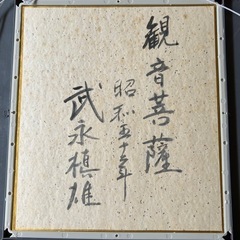 観音菩薩
昭和五十年
武永槙雄